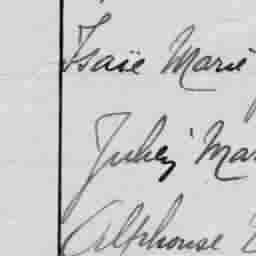 Isaïe Marie
Juhej Mar
Alphonse